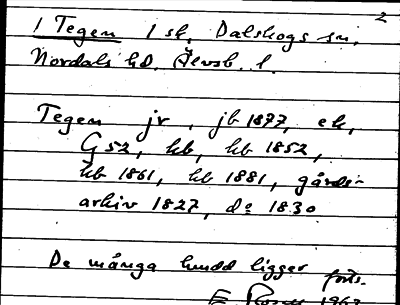 2
1 Tegen 1 sk, Dalskogs sn,
Nordals hd, Älvsb. l.
Tegen jr, jb 1877, ek,
G 52, kb, kb 1852,
kb 1861, kb 1881, gårds-
arkiv 1827, do 1830
De många hundd ligger forts.
E 1963